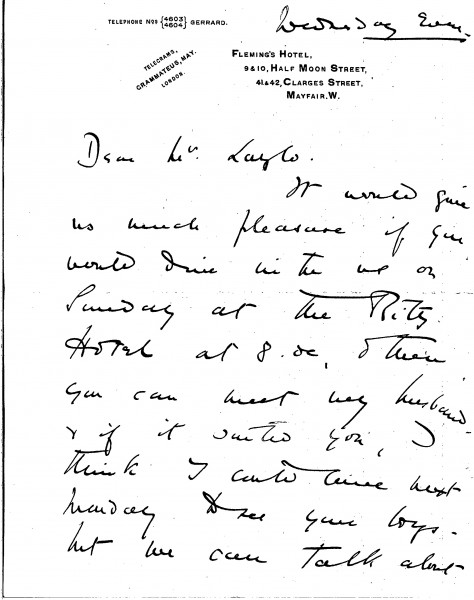 Wednesday Even.
TELEPHONE Nos {4603/4604} GERRARD.
TELEGRAMS,
GRAMMATEUS, MAY.
LONDON.
FLEMING'S HOTEL,
9 & 10, HALF MOON STREET,
41 & 42, CLARGES STREET,
MAYFAIR. W.
Dear Mr.
It would give
us much pleasure if you
would dine with us on
Sunday at the Ritz
Hotel at 8. oc, & then
you can meet my husband
& if it suited you, I
think I could come next
Monday to see your boys.
but we can talk about